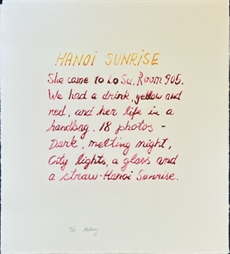 HANOI SUNRISE
She came to Lo Su, Room 906.
We had a drink, yellow and
red, and her life in a
handbag. 18 photos -
Dark, melting night,
City lights, a glass and
a straw - Hanoi Sunrise.